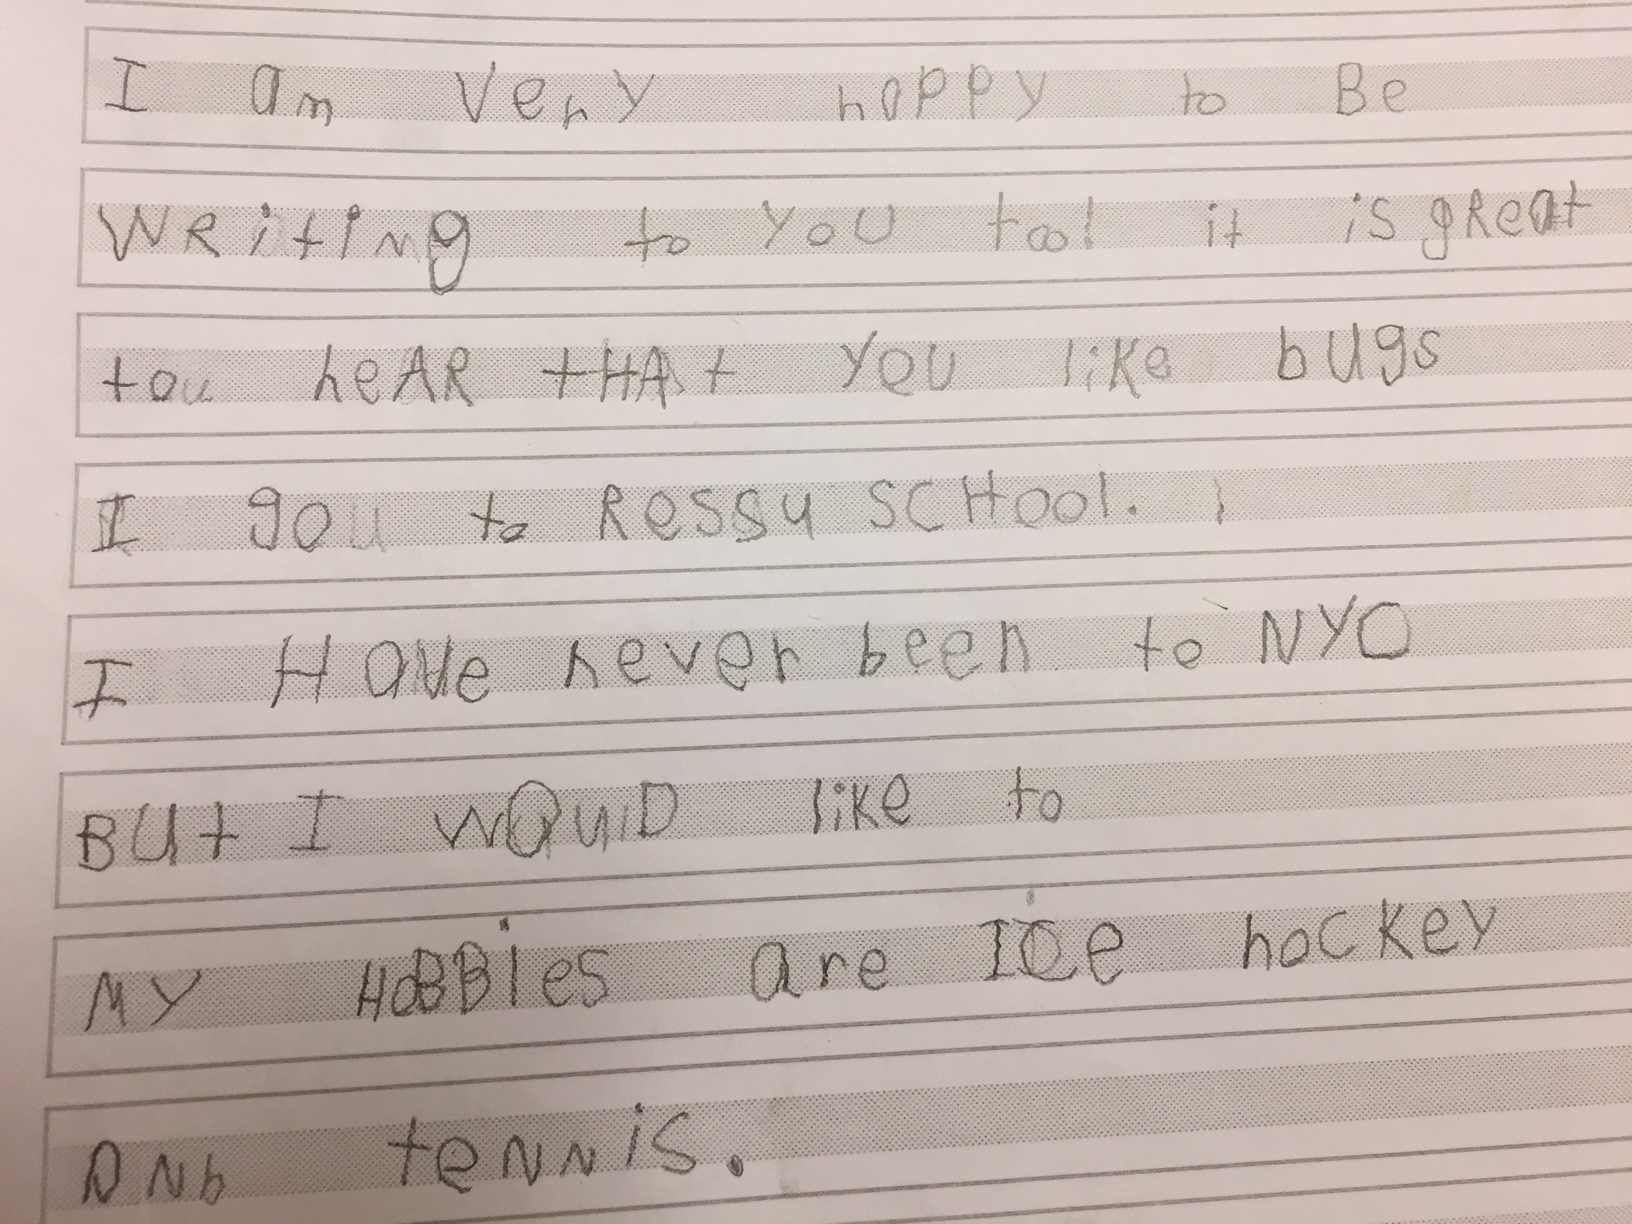 I am Very happy to Be
WRiting to YOU too! it is gReat
tou heAR tHAt YOU like bUgs
I gou to RESSU SCHOOl.
I HaVe never been to NYC
BUt I WOulD like to
MY HOBBies are ICe hockey
aNb teNNis.